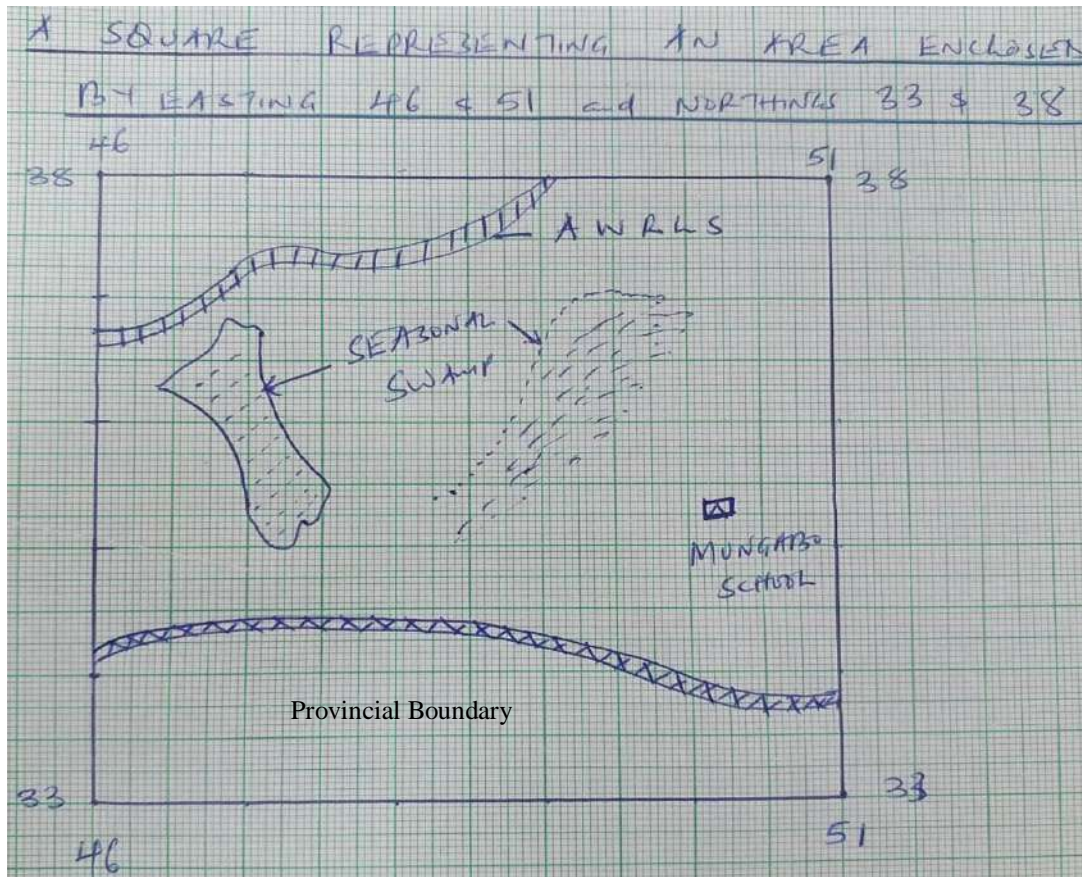 A SQUARE REPRESENTING AN AREA ENCLOSED
BY EASTING 46 & 51 and NORTHINGS 33 & 38
46
51
38
38
AWRLS
SEASONAL
SWAMP
MUNGABO
SCHOOL
Provincial Boundary
33
33
46
51